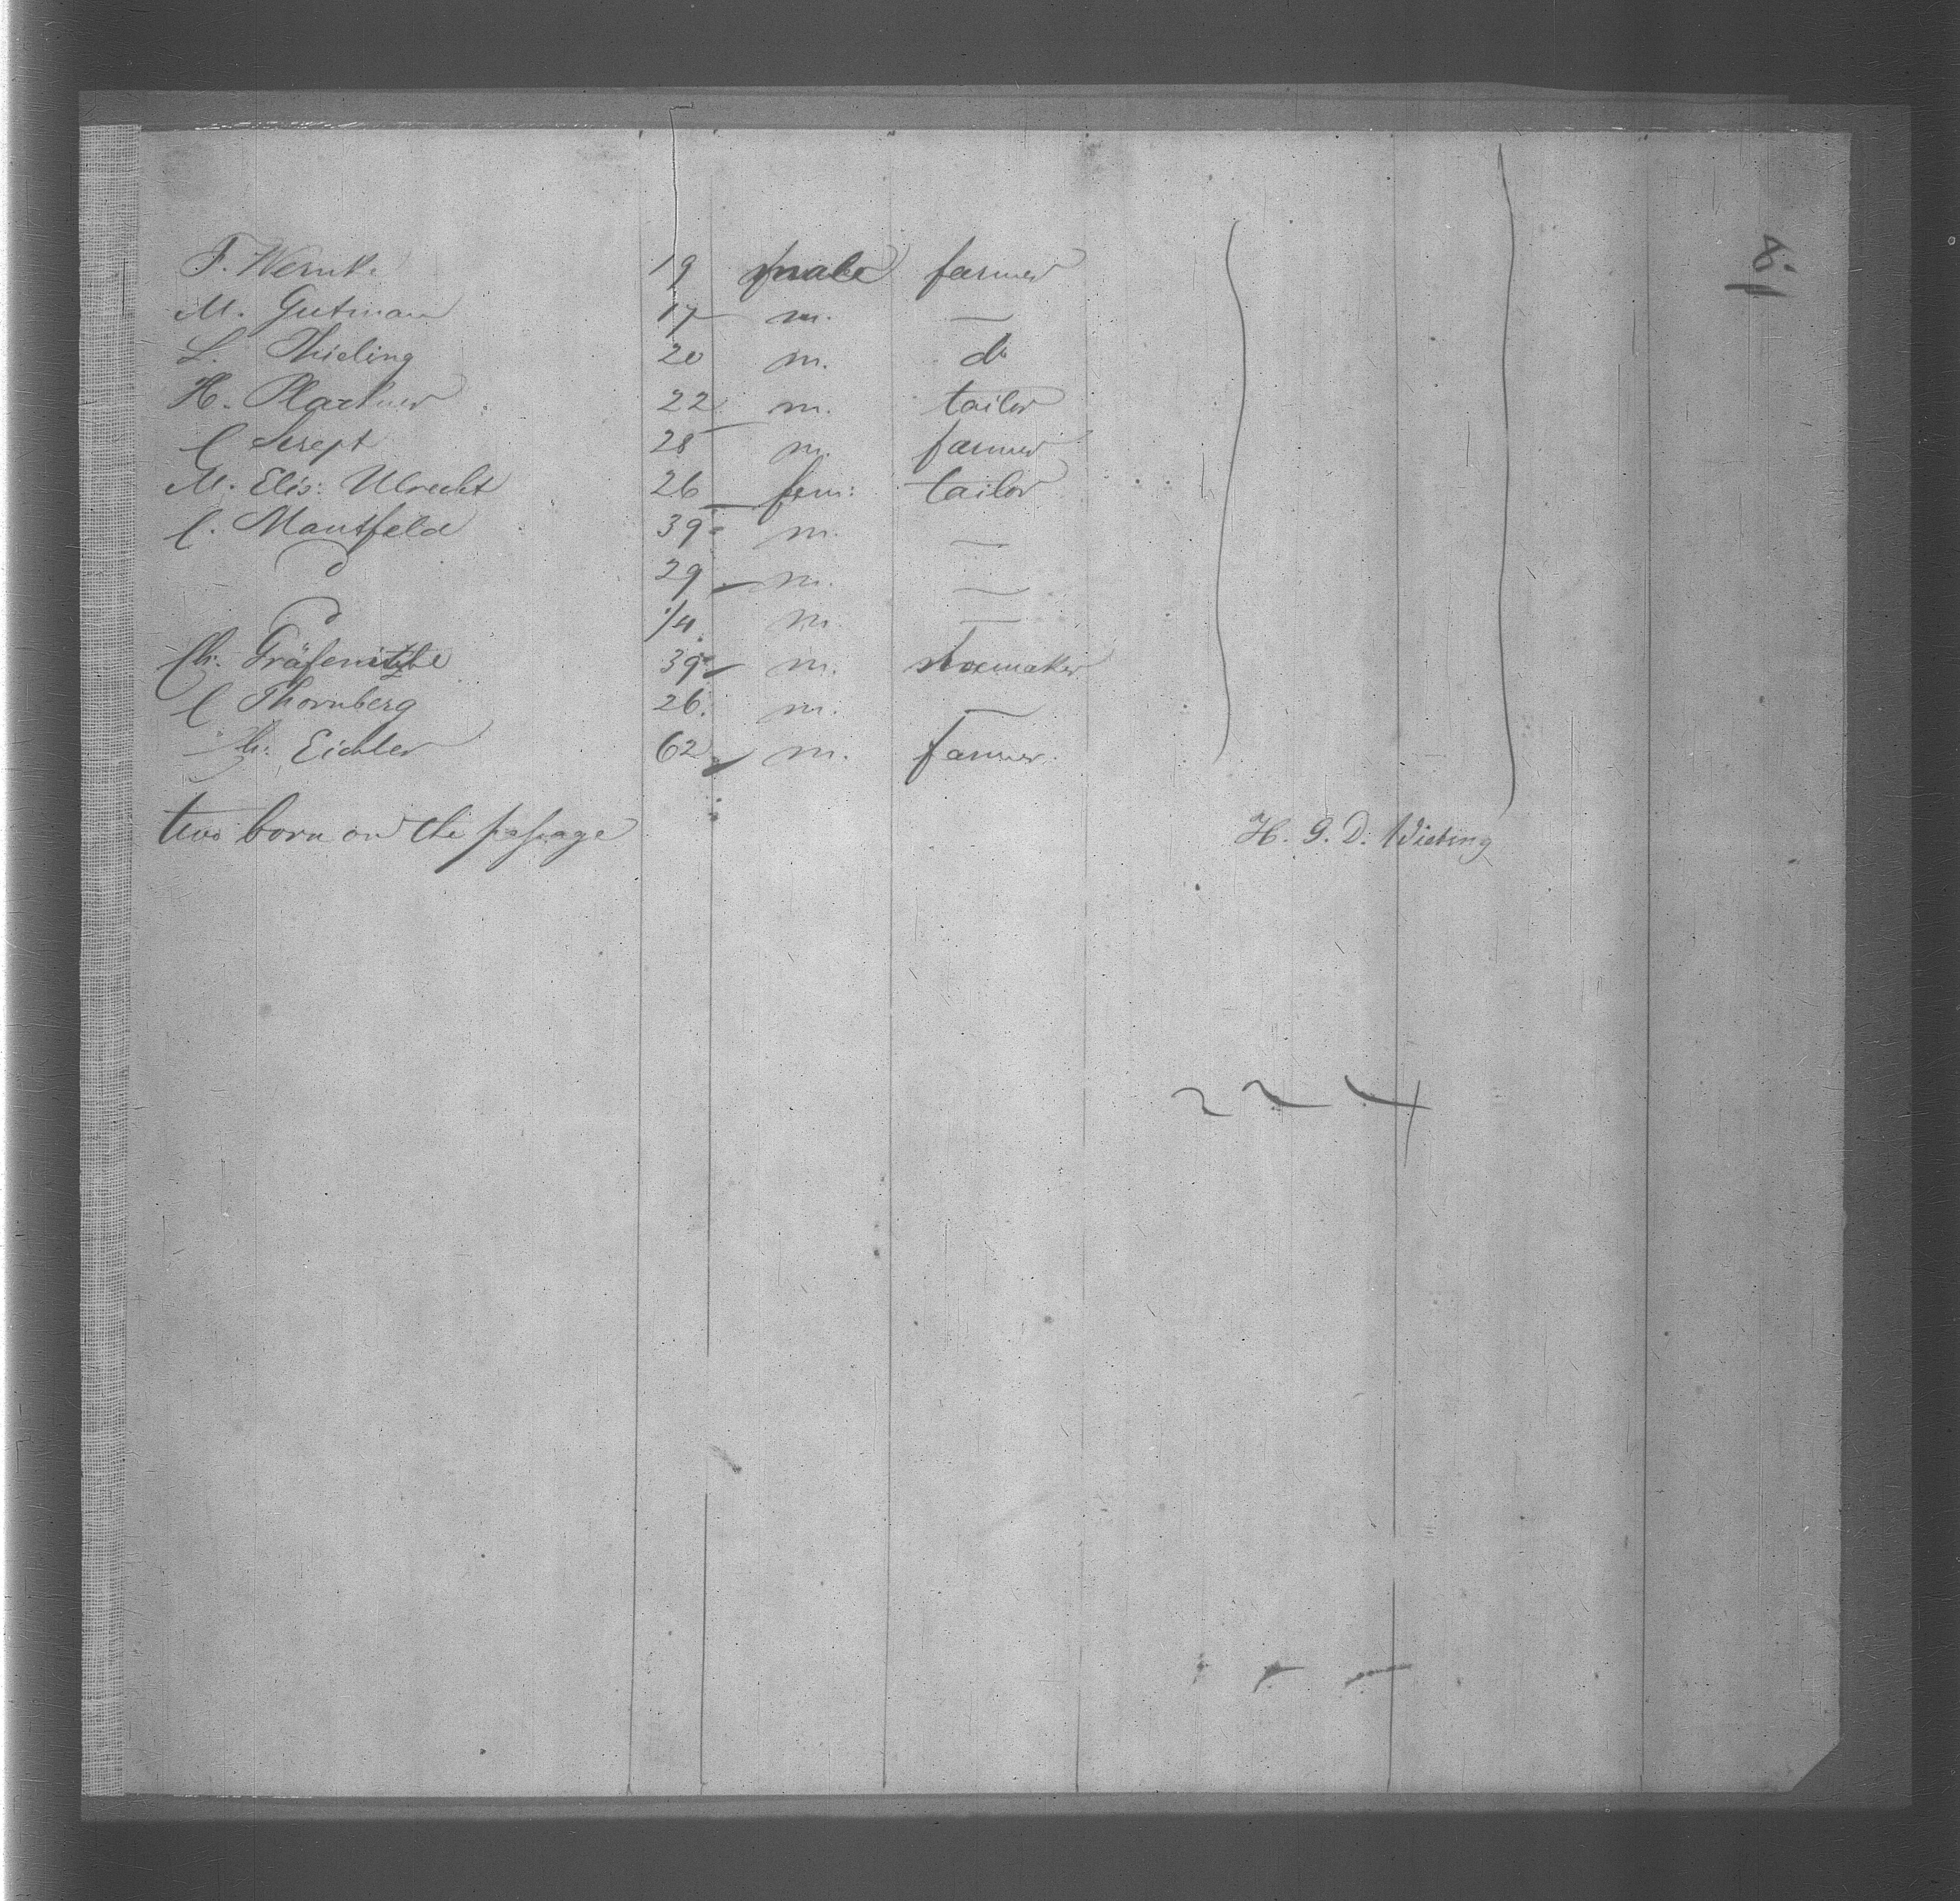 8.
F. Wernke 19 male farmer
M. Gutman 17 m. —
L. Thieling 20 m. do
H. Plackner 22 m. tailor
C 28 m. farmer
M. Elis: Ulrecht 26 fem: tailor
C. Mantfeld 39 m. —
29 m. —
1/4 m. —
Ch. 39 m. shoemaker
C Thornberg 26. m. —
Ch. Eichler 62 m. farmer.
two born on the passage
H. G. D. Wieting
224